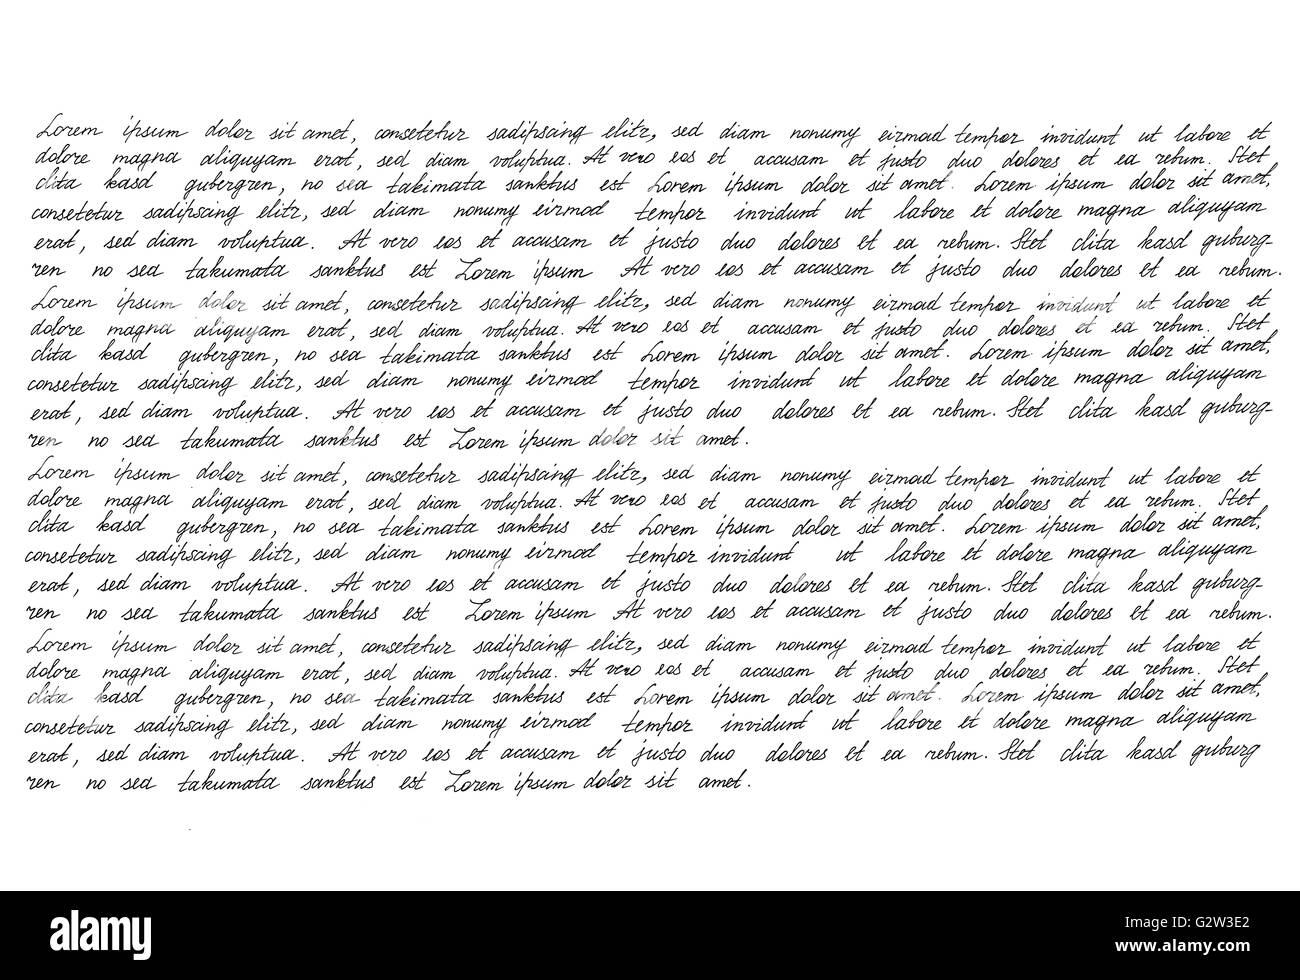 Lorem ipsum dolor sit amet, consetetur sadipscing elitr, sed diam nonumy eirmod tempor invidunt ut labore et
dolore magna aliquyam erat, sed diam voluptua. At vero eos et accusam et justo duo dolores et ea rebum. Stet
clita kasd gubergren, no sea takimata sanktus est Lorem ipsum dolor sit amet. Lorem ipsum dolor sit amet,
consetetur sadipscing elitr, sed diam nonumy eirmod tempor invidunt ut labore et dolore magna aliquyam
erat, sed diam voluptua. At vero eos et accusam et justo duo dolores et ea rebum. Stet clita kasd guburg-
ren no sea takumata sanktus est Lorem ipsum At vero eos et accusam et justo duo dolores et ea rebum.
Lorem ipsum dolor sit amet, consetetur sadipscing elitr, sed diam nonumy eirmod tempor invidunt ut labore et
dolore magna aliquyam erat, sed diam voluptua. At vero eos et accusam et justo duo dolores et ea rebum. Stet
clita kasd gubergren, no sea takimata sanktus est Lorem ipsum dolor sit amet. Lorem ipsum dolor sit amet,
consetetur sadipscing elitr, sed diam nonumy eirmod tempor invidunt ut labore et dolore magna aliquyam
erat, sed diam voluptua. At vero eos et accusam et justo duo dolores et ea rebum. Stet clita kasd guburg-
ren no sea takumata sanktus est Lorem ipsum dolor sit amet.
Lorem ipsum dolor sit amet, consetetur sadipscing elitr, sed diam nonumy eirmod tempor invidunt ut labore et
dolore magna aliquyam erat, sed diam voluptua. At vero eos et accusam et justo duo dolores et ea rebum. Stet
clita kasd gubergren, no sea takimata sanktus est Lorem ipsum dolor sit amet. Lorem ipsum dolor sit amet,
consetetur sadipscing elitr, sed diam nonumy eirmod tempor invidunt ut labore et dolore magna aliquyam
erat, sed diam voluptua. At vero eos et accusam et justo duo dolores et ea rebum. Stet clita kasd guburg-
ren no sea takumata sanktus est Lorem ipsum At vero eos et accusam et justo duo dolores et ea rebum.
Lorem ipsum dolor sit amet, consetetur sadipscing elitr, sed diam nonumy eirmod tempor invidunt ut labore et
dolore magna aliquyam erat, sed diam voluptua. At vero eos et accusam et justo duo dolores et ea rebum. Stet
clita kasd gubergren, no sea takimata sanktus est Lorem ipsum dolor sit amet. Lorem ipsum dolor sit amet,
consetetur sadipscing elitr, sed diam nonumy eirmod tempor invidunt ut labore et dolore magna aliquyam
erat, sed diam voluptua. At vero eos et accusam et justo duo dolores et ea rebum. Stet clita kasd guburg
ren no sea takumata sanktus est Lorem ipsum dolor sit amet.
alamy
Image ID: G2W3E2
www.alamy.com